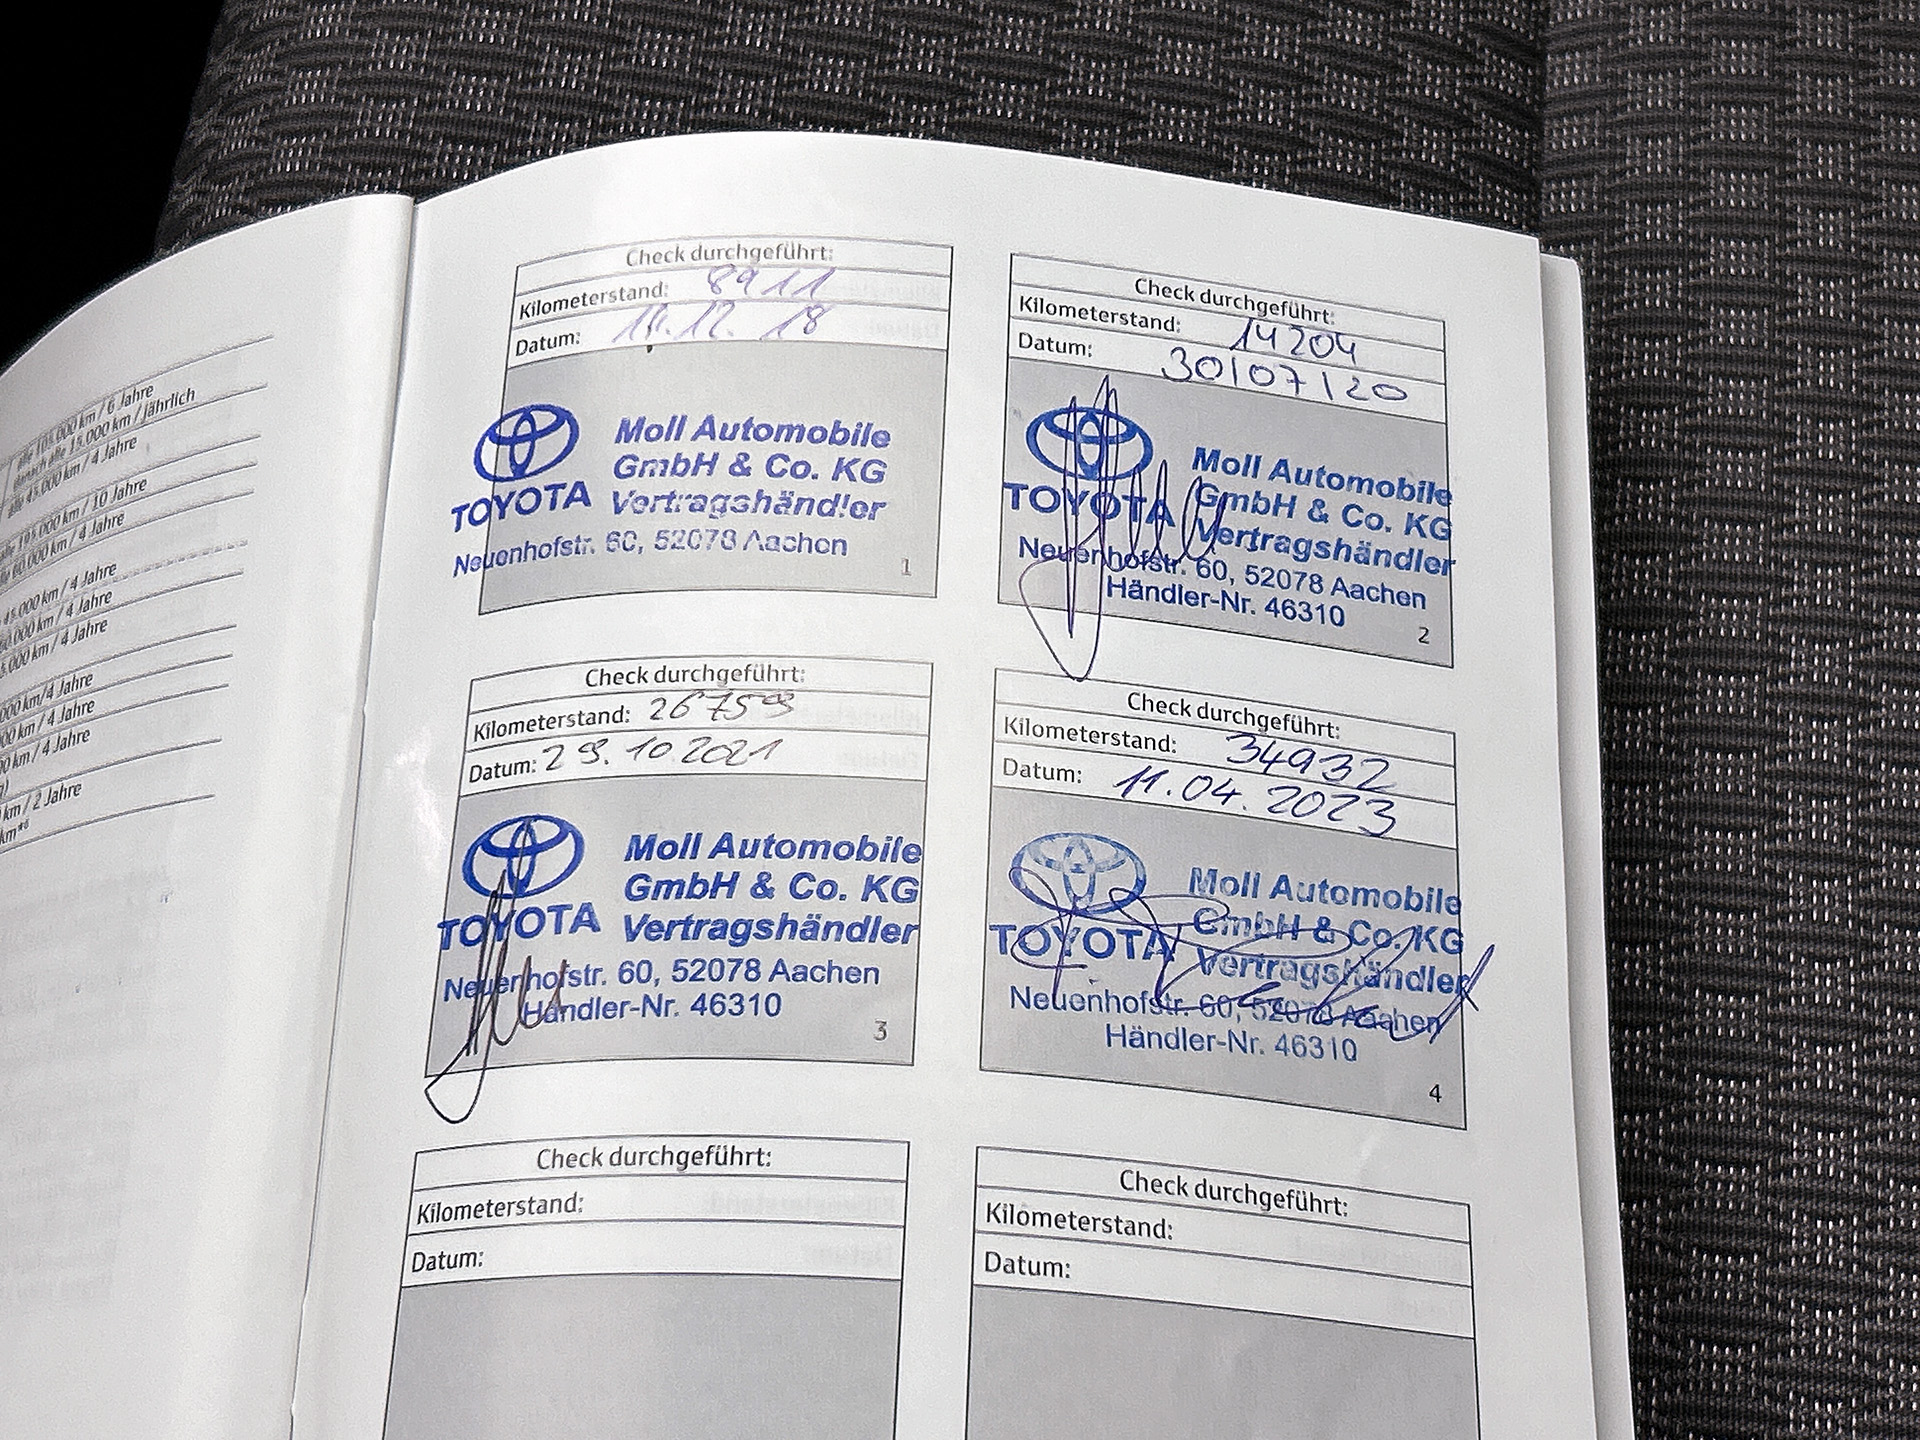 alle 105.000 km / 6 Jahre
danach alle 15.000 km / jährlich
alle 45.000 km / 4 Jahre
alle 195.000 km / 10 Jahre
alle 60.000 km / 4 Jahre
45.000 km / 4 Jahre
60.000 km / 4 Jahre
5.000 km / 4 Jahre
000 km/4 Jahre
000 km / 4 Jahre
0 km / 4 Jahre
km / 2 Jahre
km*6
Check durchgeführt:
Kilometerstand: 8911
Datum: 11.12. 18
TOYOTA
Moll Automobile
GmbH & Co. KG
Vertragshändler
Neuenhofstr. 60, 52078 Aachen
1
Check durchgeführt:
Kilometerstand: 14204
Datum: 30/07/20
TOYOTA
Moll Automobile
GmbH & Co. KG
Vertragshändler
Neuenhofstr. 60, 52078 Aachen
Händler-Nr. 46310
2
Check durchgeführt:
Kilometerstand: 26759
Datum: 29.10.2021
TOYOTA
Moll Automobile
GmbH & Co. KG
Vertragshändler
Neuenhofstr. 60, 52078 Aachen
Händler-Nr. 46310
3
Check durchgeführt:
Kilometerstand: 34932
Datum: 11.04.2023
TOYOTA
Moll Automobile
GmbH & Co. KG
Vertragshändler
Neuenhofstr. 60, 52078 Aachen
Händler-Nr. 46310
4
Check durchgeführt:
Kilometerstand:
Datum:
Check durchgeführt:
Kilometerstand:
Datum: